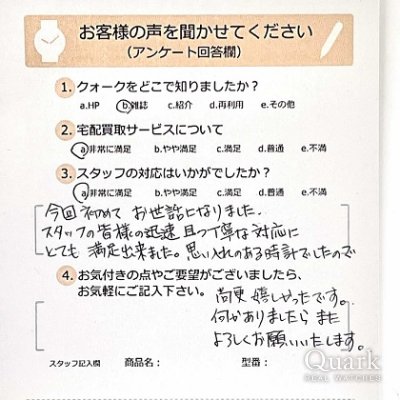 お客様の声を聞かせてください
(アンケート回答欄)
1. クォークをどこで知りましたか?
a.HP b.雑誌 c.紹介 d.再利用 e.その他
2. 宅配買取サービスについて
a.非常に満足 b.やや満足 c.満足 d.普通 e.不満
3. スタッフの対応はいかがでしたか?
a.非常に満足 b.やや満足 c.満足 d.普通 e.不満
今回初めて お世話になりました。
スタッフの皆様の迅速且つ丁寧な対応に
とても満足出来ました。思い入れのある時計でしたので
4. お気付きの点やご要望がございましたら、
お気軽にご記入下さい。
尚更嬉しかったです。
何かありましたら また
よろしくお願いいたします。
スタッフ記入欄 商品名: 型番:
Quark
REAL WATCHES